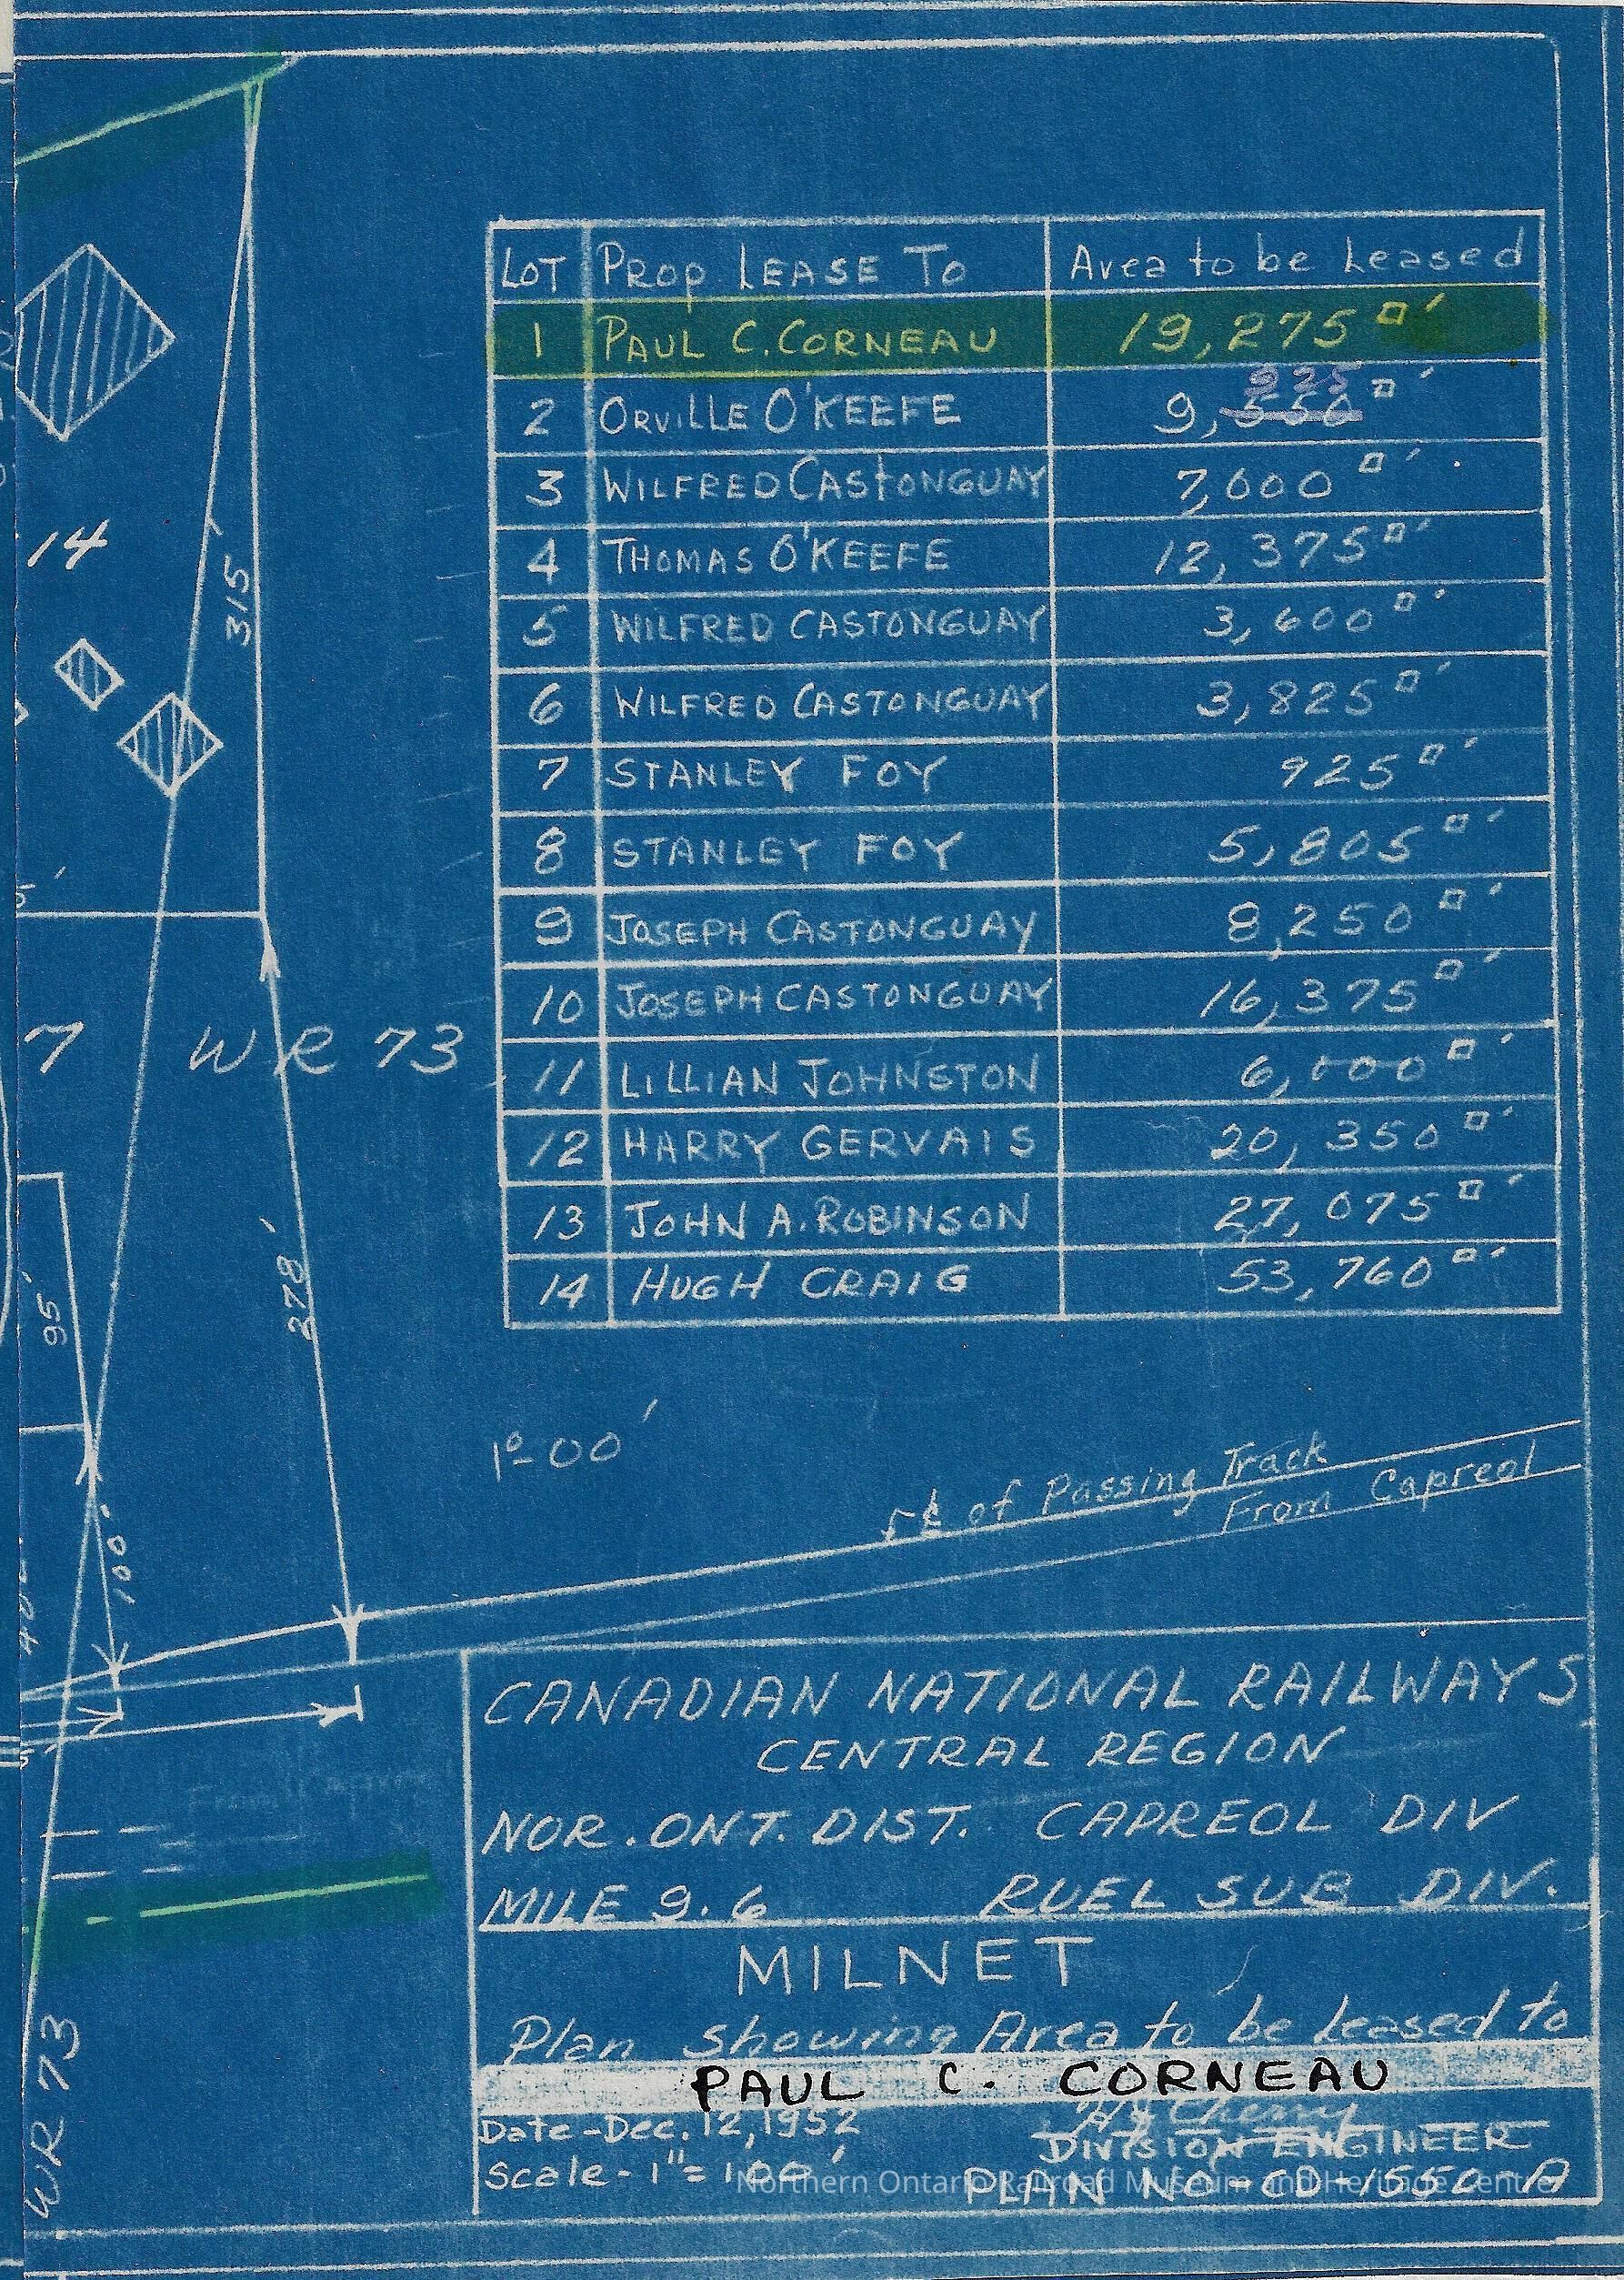 LOT PROP LEASE TO Area to be Leased
1 PAUL C. CORNEAU 19,275 □'
2 ORVILLE O'KEEFE 9,550 225 □'
3 WILFRED CASTONGUAY 7,600 □'
4 THOMAS O'KEEFE 12,375 □'
5 WILFRED CASTONGUAY 3,600 □'
6 WILFRED CASTONGUAY 3,825 □'
7 STANLEY FOY 925 □'
8 STANLEY FOY 5,805 □'
9 JOSEPH CASTONGUAY 8,250 □'
10 JOSEPH CASTONGUAY 16,375 □'
11 LILLIAN JOHNSTON 6,000 □'
12 HARRY GERVAIS 20,350 □'
13 JOHN A. ROBINSON 27,075 □'
14 HUGH CRAIG 53,760 □'
14
315'
7
WR 73
278'
95'
100'
1°-00'
℄ of Passing Track
From Capreol
CANADIAN NATIONAL RAILWAYS
CENTRAL REGION
NOR. ONT. DIST. CAPREOL DIV
MILE 9.6 RUEL SUB DIV.
MILNET
Plan showing Area to be Leased to
PAUL C. CORNEAU
Date - Dec. 12, 1952
Cherry
DIVISION ENGINEER
Scale - 1" = 100'
PLAN NO CD 1550-A
WR 73
Northern Ontario Railroad Museum and Heritage Centre